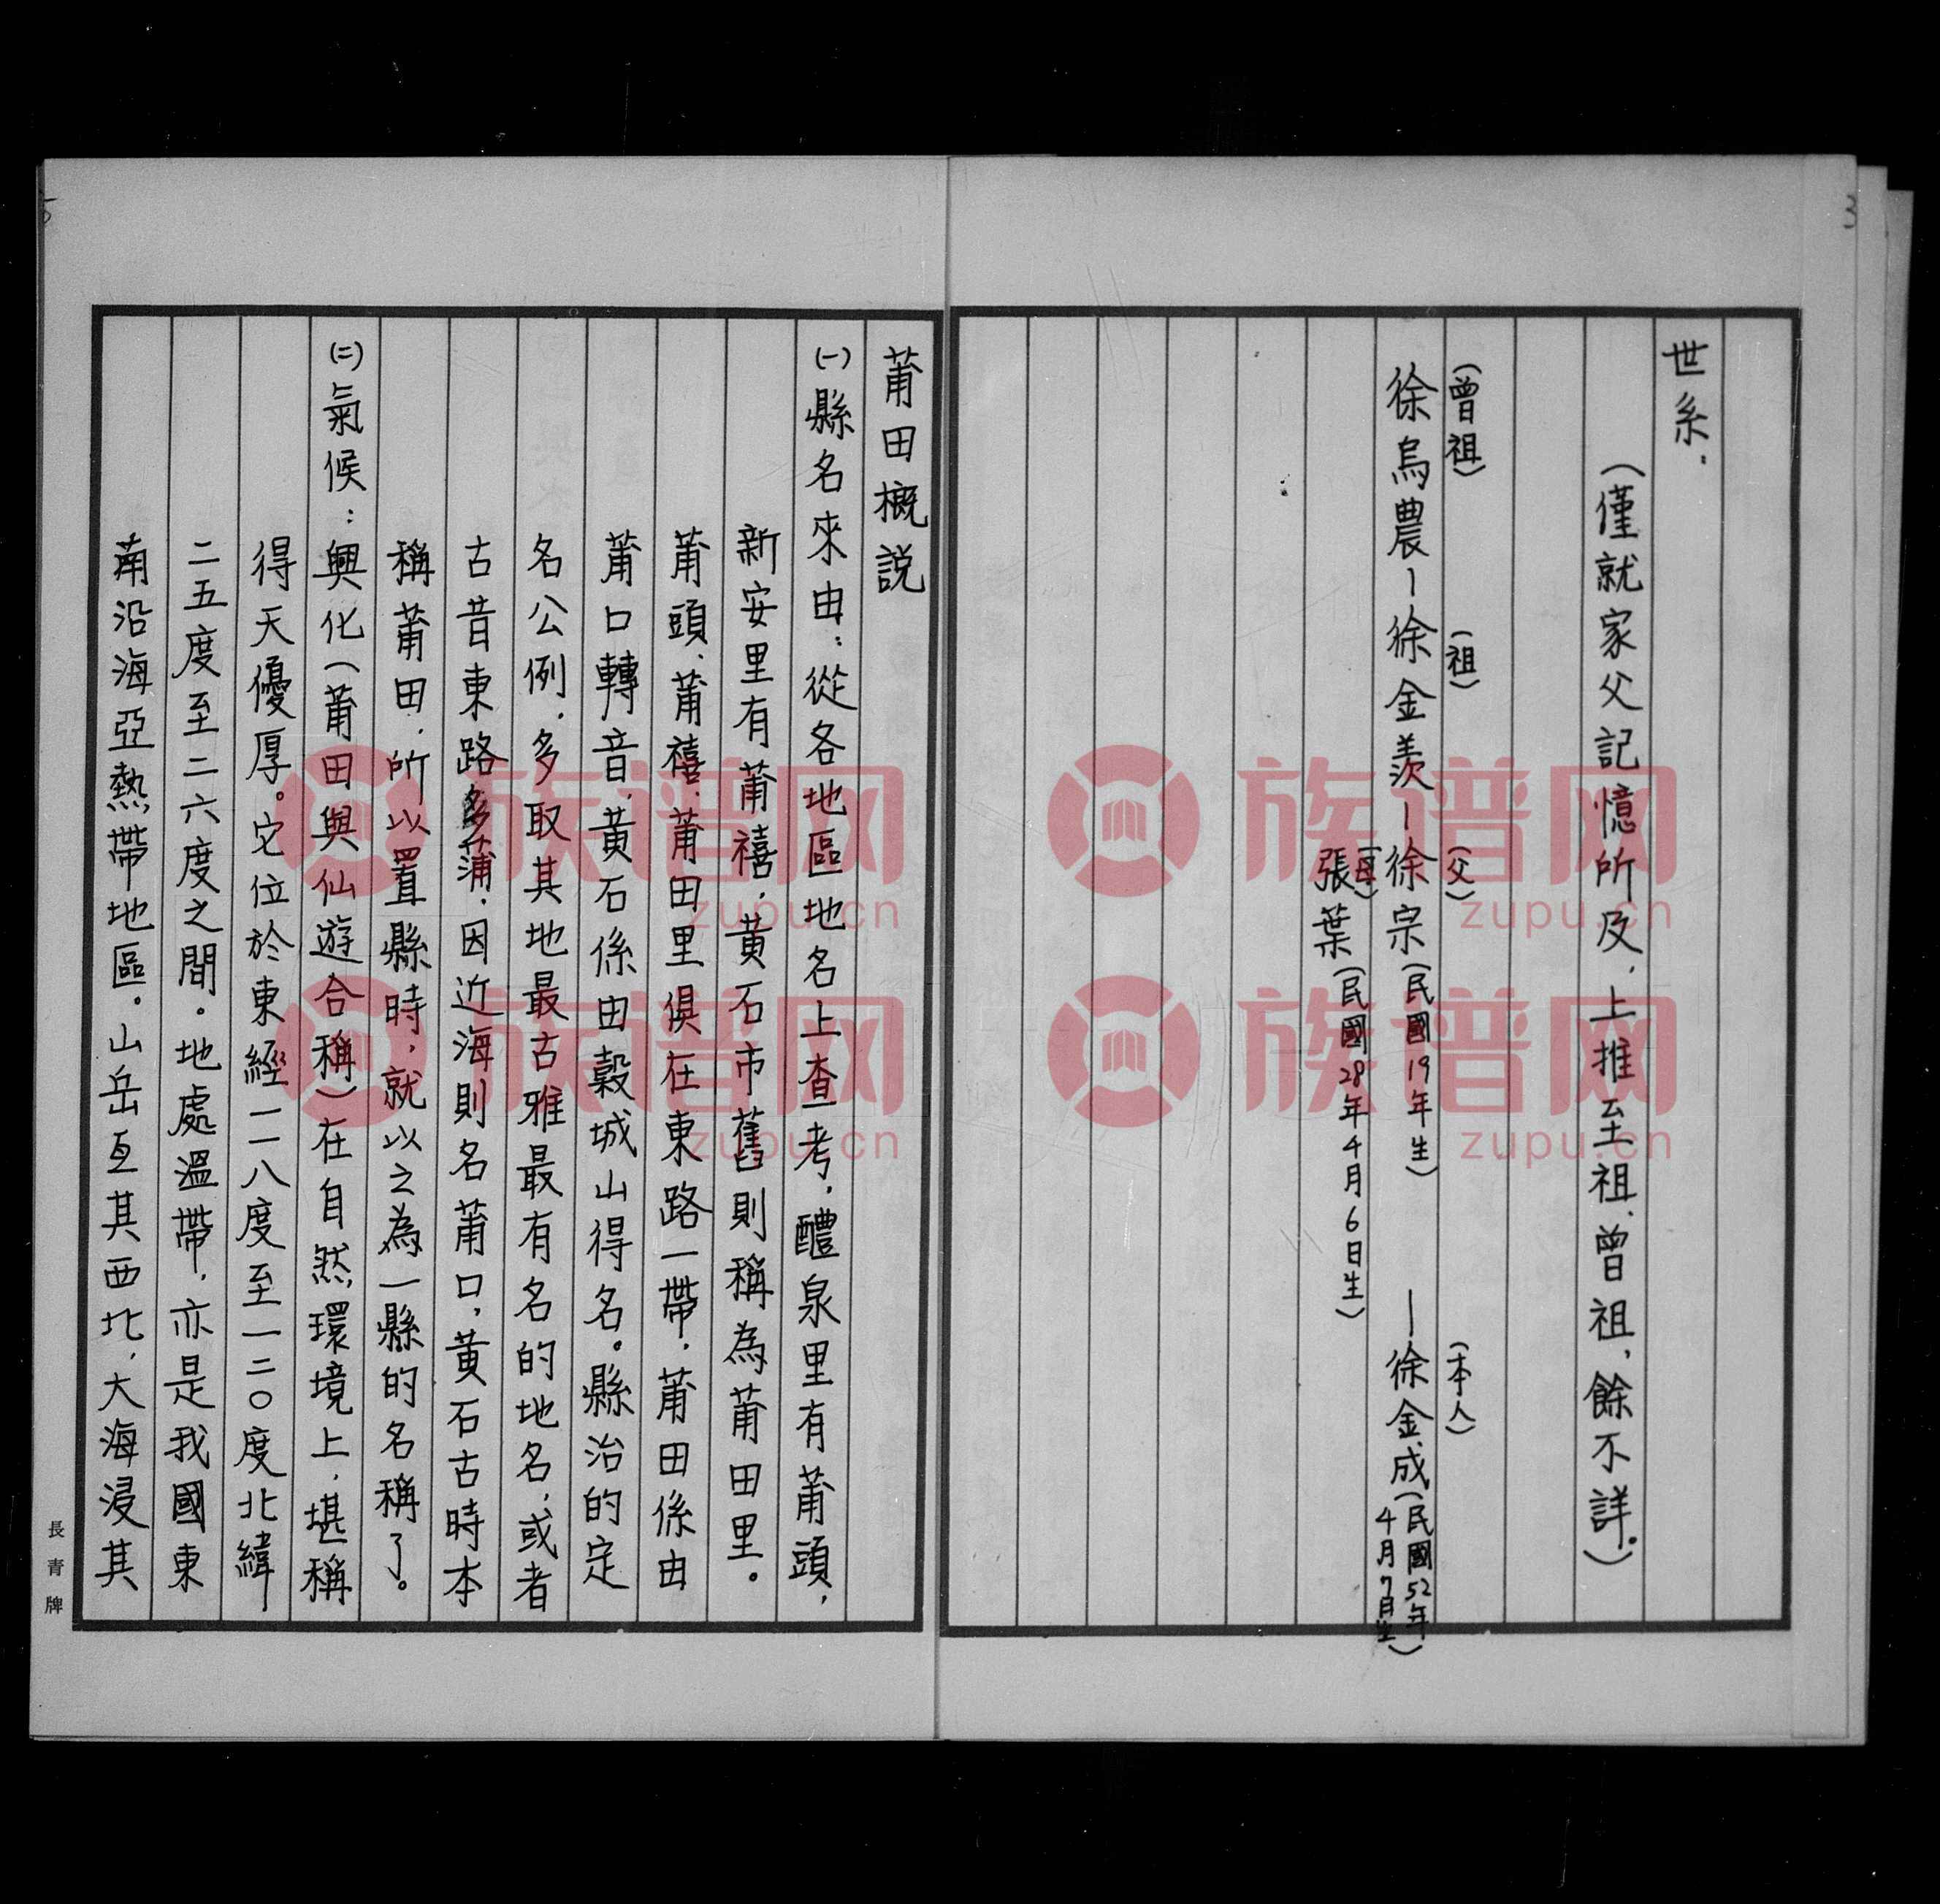 3
世系：
（僅就家父記憶所及，上推至祖、曾祖，餘不詳。）
（曾祖）
（祖）
（父）
（本人）
徐烏農—徐金羨—徐宗（民國19年生）—徐金成（民國52年4月7日生）
（母）
張葉（民國28年4月6日生）
莆田概説
㈠縣名來由：從各地區地名上查考，醴泉里有莆頭，
新安里有莆禧，黃石市舊則稱為莆田里。
莆頭、莆禧、莆田里俱在東路一帶，莆田係由
莆口轉音，黃石係由穀城山得名。縣治的定
名公例，多取其地最古雅最有名的地名，或者
古昔東路多蒲，因近海則名莆口，黃石古時本
稱莆田，所以置縣時，就以之為一縣的名稱了。
㈡氣候：興化（莆田與仙遊合稱）在自然環境上，堪稱
得天優厚。它位於東經一一八度至一二〇度北緯
二五度至二六度之間。地處溫帶，亦是我國東
南沿海亞熱帶地區。山岳亙其西北，大海浸其
長青牌
族谱网
zupu.cn
族谱网
zupu.cn
族谱网
zupu.cn
族谱网
zupu.cn